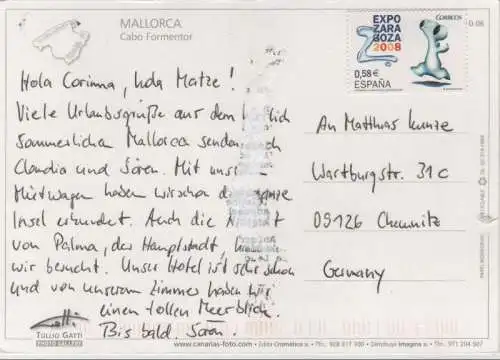 MALLORCA
Cabo Formentor
Hola Corinna, hola Matze!
Viele Urlaubsgrüße aus dem
sommerlichen Mallorca senden
Claudia und Sören. Mit
Mietwagen haben wir schon die
Insel erkundet. Auch die
von Palma, der Hauptstadt,
wir besucht. Unser Hotel ist sehr schön
und von unserem Zimmer haben wir
einen tollen Meerblick.
Bis bald. Sören.
EXPO
ZARA
GOZA
2008
CORREOS
0,58€
ESPAÑA
An Matthias Kunze
Wartburgstr. 31c
09126 Chemnitz
Germany
TULLIO GATTI
PHOTO GALLERY
www.canarias-foto.com